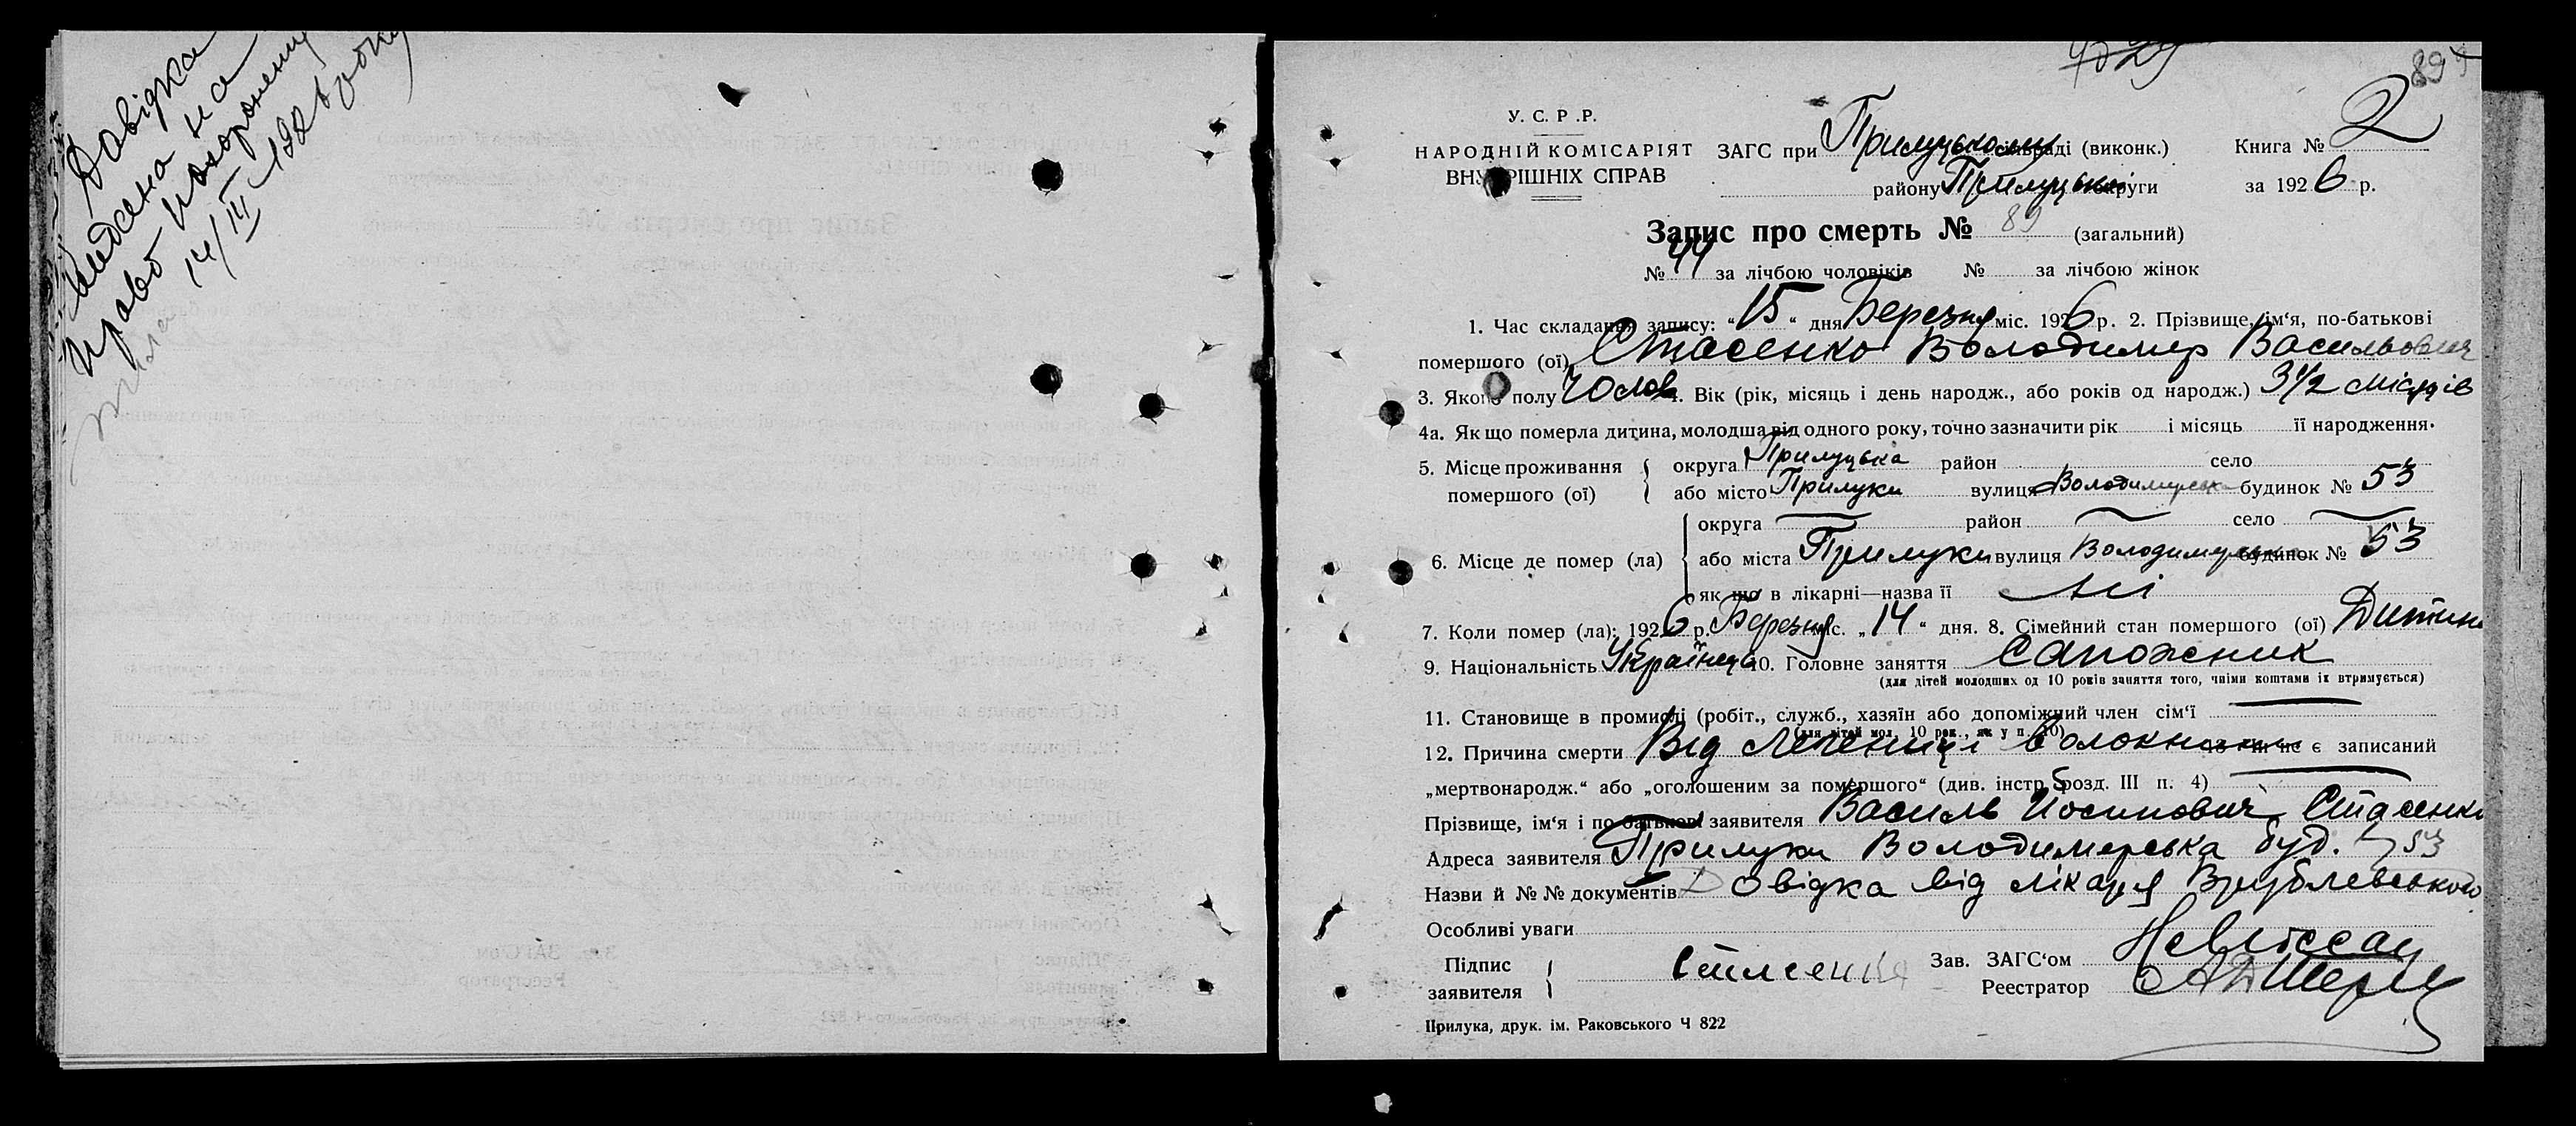 Довідка
видсена на
право похоронення
тіла 14/III 1926 року
899
У. С. Р .Р.
НАРОДНІЙ КОМІСАРІЯТ
ВНУТРІШНІХ СПРАВ
ЗАГС при Прилуцькому сільраді (виконк.)
району Прилуцької округи
Книга № 2
за 1926 р.
Запис про смерть № 89 (загальний)
№ 44 за лічбою чоловіків № за лічбою жінок
1. Час складання запису: "15" дня Березня міс. 1926 р. 2. Прізвище, ім'я, по-батькові
помершого (ої) Стасенко Володимир Васильович
3. Якого полу Чолов 4. Вік (рік, місяць і день народж., або років од народж.) 3 1/2 місяців
4а. Як що померла дитина, молодша від одного року, точно зазначити рік і місяць її народження.
5. Місце проживання помершого (ої) { округа Прилуцька район село
або місто Прилуки вулиця Володимирська будинок № 53
6. Місце де помер (ла) { округа район село
або міста Прилуки вулиця Володимирська будинок № 53
як що в лікарні—назва її ні
7. Коли помер (ла): 1926 р. Березня міс. „14" дня. 8. Сімейний стан помершого (ої) Дитина
9. Національність Українець 10. Головне заняття Сапожник
(для дітей молодших од 10 років заняття того, чиїми коштами їх втримується)
11. Становище в промислі (робіт., служб., хазяїн або допоміжний член сім'ї
(для дітей мол. 10 рок., як у п. 10)
12. Причина смерти Від є записаний
„мертвонародж." або „оголошеним за помершого" (див. інстр. розд. III п. 4)
Прізвище, ім'я і по-батькові заявителя Василь Йосипович Стасенко
Адреса заявителя Прилуки Володимирська буд. 53
Назви й № № документів Довідка від лікаря Врублевського
Особливі уваги
Підпис заявителя { Стасенко
Зав. ЗАГС'ом
Реєстратор
Прилука, друк. ім. Раковського Ч 822